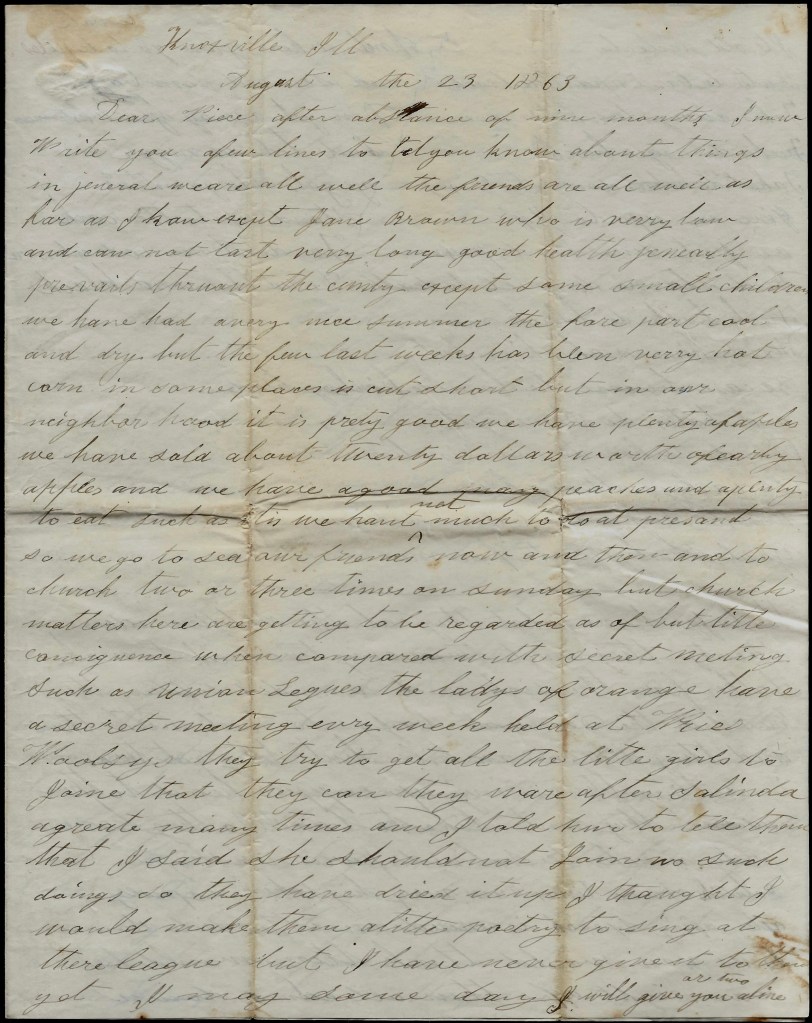 Knoxville Ill
August the 23 1863
Dear Niece after abstance of nine months I now
Write you afew lines to let you know about things
in jeneral weare all well the friends are all well as
far as I know exept Jane Brown who is verry low
and can not last verry long good health jenearly
prevails thruout the cunty exept some small children
we have had avery nice summer the fore part cool
and dry but the few last weeks has been verry hot
corn in some places is cut short but in our
neighbor hood it is prety good we have plenty of apples
we have sold about twenty dollars worth of early
apples and we have agood many peaches and aplenty
to eat such as tis we hant not much to do at presant
so we go to sea our friends now and then and to
church two or three times on sunday but church
matters here are getting to be regarded as of but little
consiquence when compared with secret meting
such as union Legues the ladys of orange have
a secret meeting evry week held at
Woolsys they try to get all the little girls to
Joine that they can they ware after Salinda
agreate many times and I told hur to tell them
that I said she should not Join no such
doings so they have dried it up I thought I
would make them alitle poetry to sing at
there league but I have never give it to them
yet I may some day I will give you aline or two